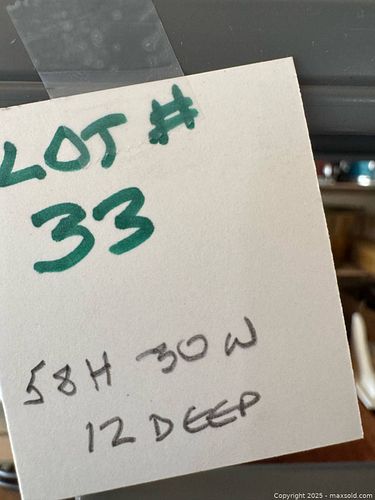 LOT #
33
58H 30W
12 DEEP
Copyright 2025 - maxsold.com